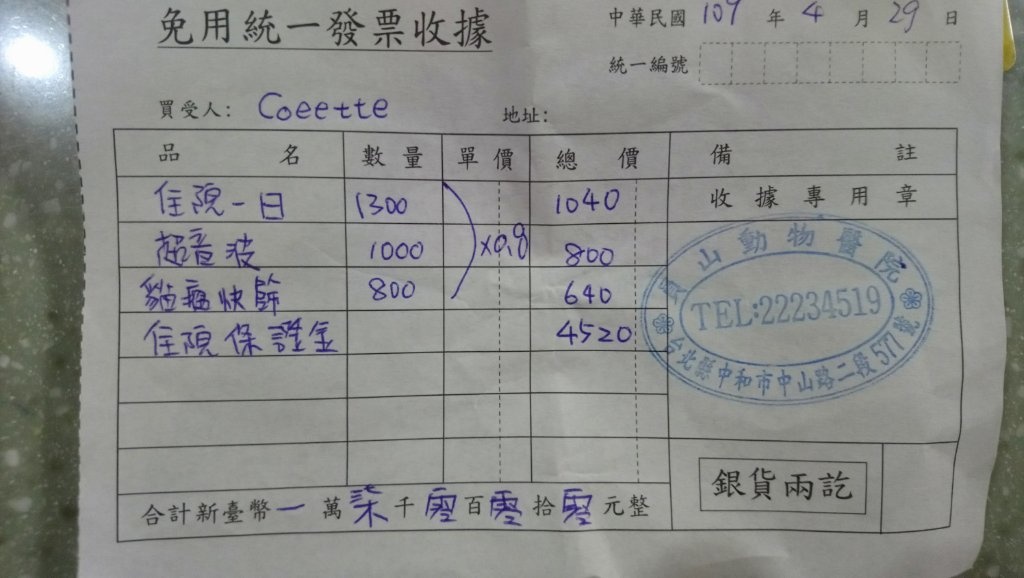 免用統一發票收據
中華民國 109 年 4 月 29 日
統一編號
買受人: Coeette 地址:
品名 數量 單價 總價 備註
住院一日 1300 1040 收據專用章
超音波 1000 x0.8 800
貓瘟快篩 800 640
住院保證金 4520
山動物醫院
TEL:22234519
台北縣中和市中山路二段577號
合計新臺幣一萬柒千零百零拾零元整
銀貨兩訖